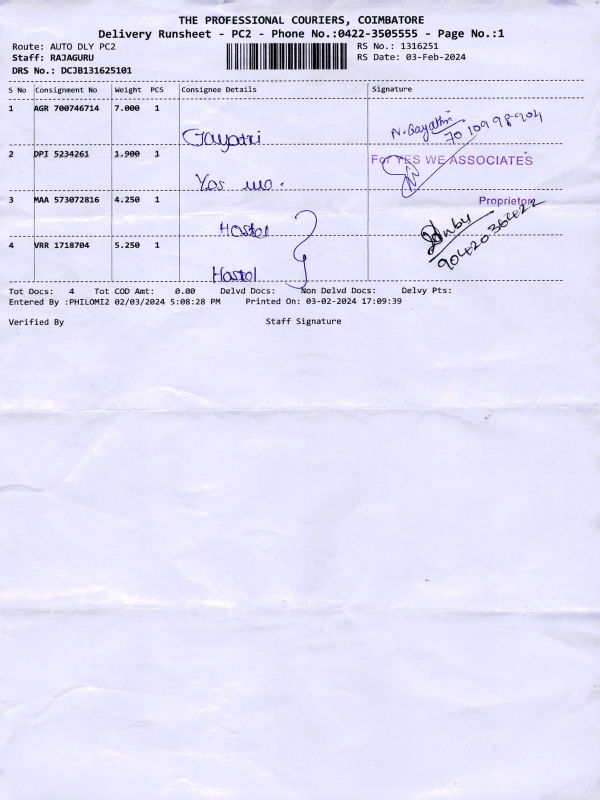 THE PROFESSIONAL COURIERS, COIMBATORE
Delivery Runsheet - PC2 - Phone No.:0422-3505555 - Page No.:1
Route: AUTO DLY PC2 RS No.: 1316251
Staff: RAJAGURU RS Date: 03-Feb-2024
DRS No.: DCJB131625101
S No Consignment No Weight PCS Consignee Details Signature
1 AGR 700746714 7.000 1
Gayatri N. Gayathri
7010998904
2 DPI 5234261 1.900 1 For YES WE ASSOCIATES
Yes we.
3 MAA 573072816 4.250 1 Proprietor
Hostel
4 VRR 1718704 5.250 1
Hostel
Tot Docs: 4 Tot COD Amt: 0.00 Delvd Docs: Non Delvd Docs: Delvy Pts:
Entered By :PHILOMI2 02/03/2024 5:08:28 PM Printed On: 03-02-2024 17:09:39
Verified By Staff Signature